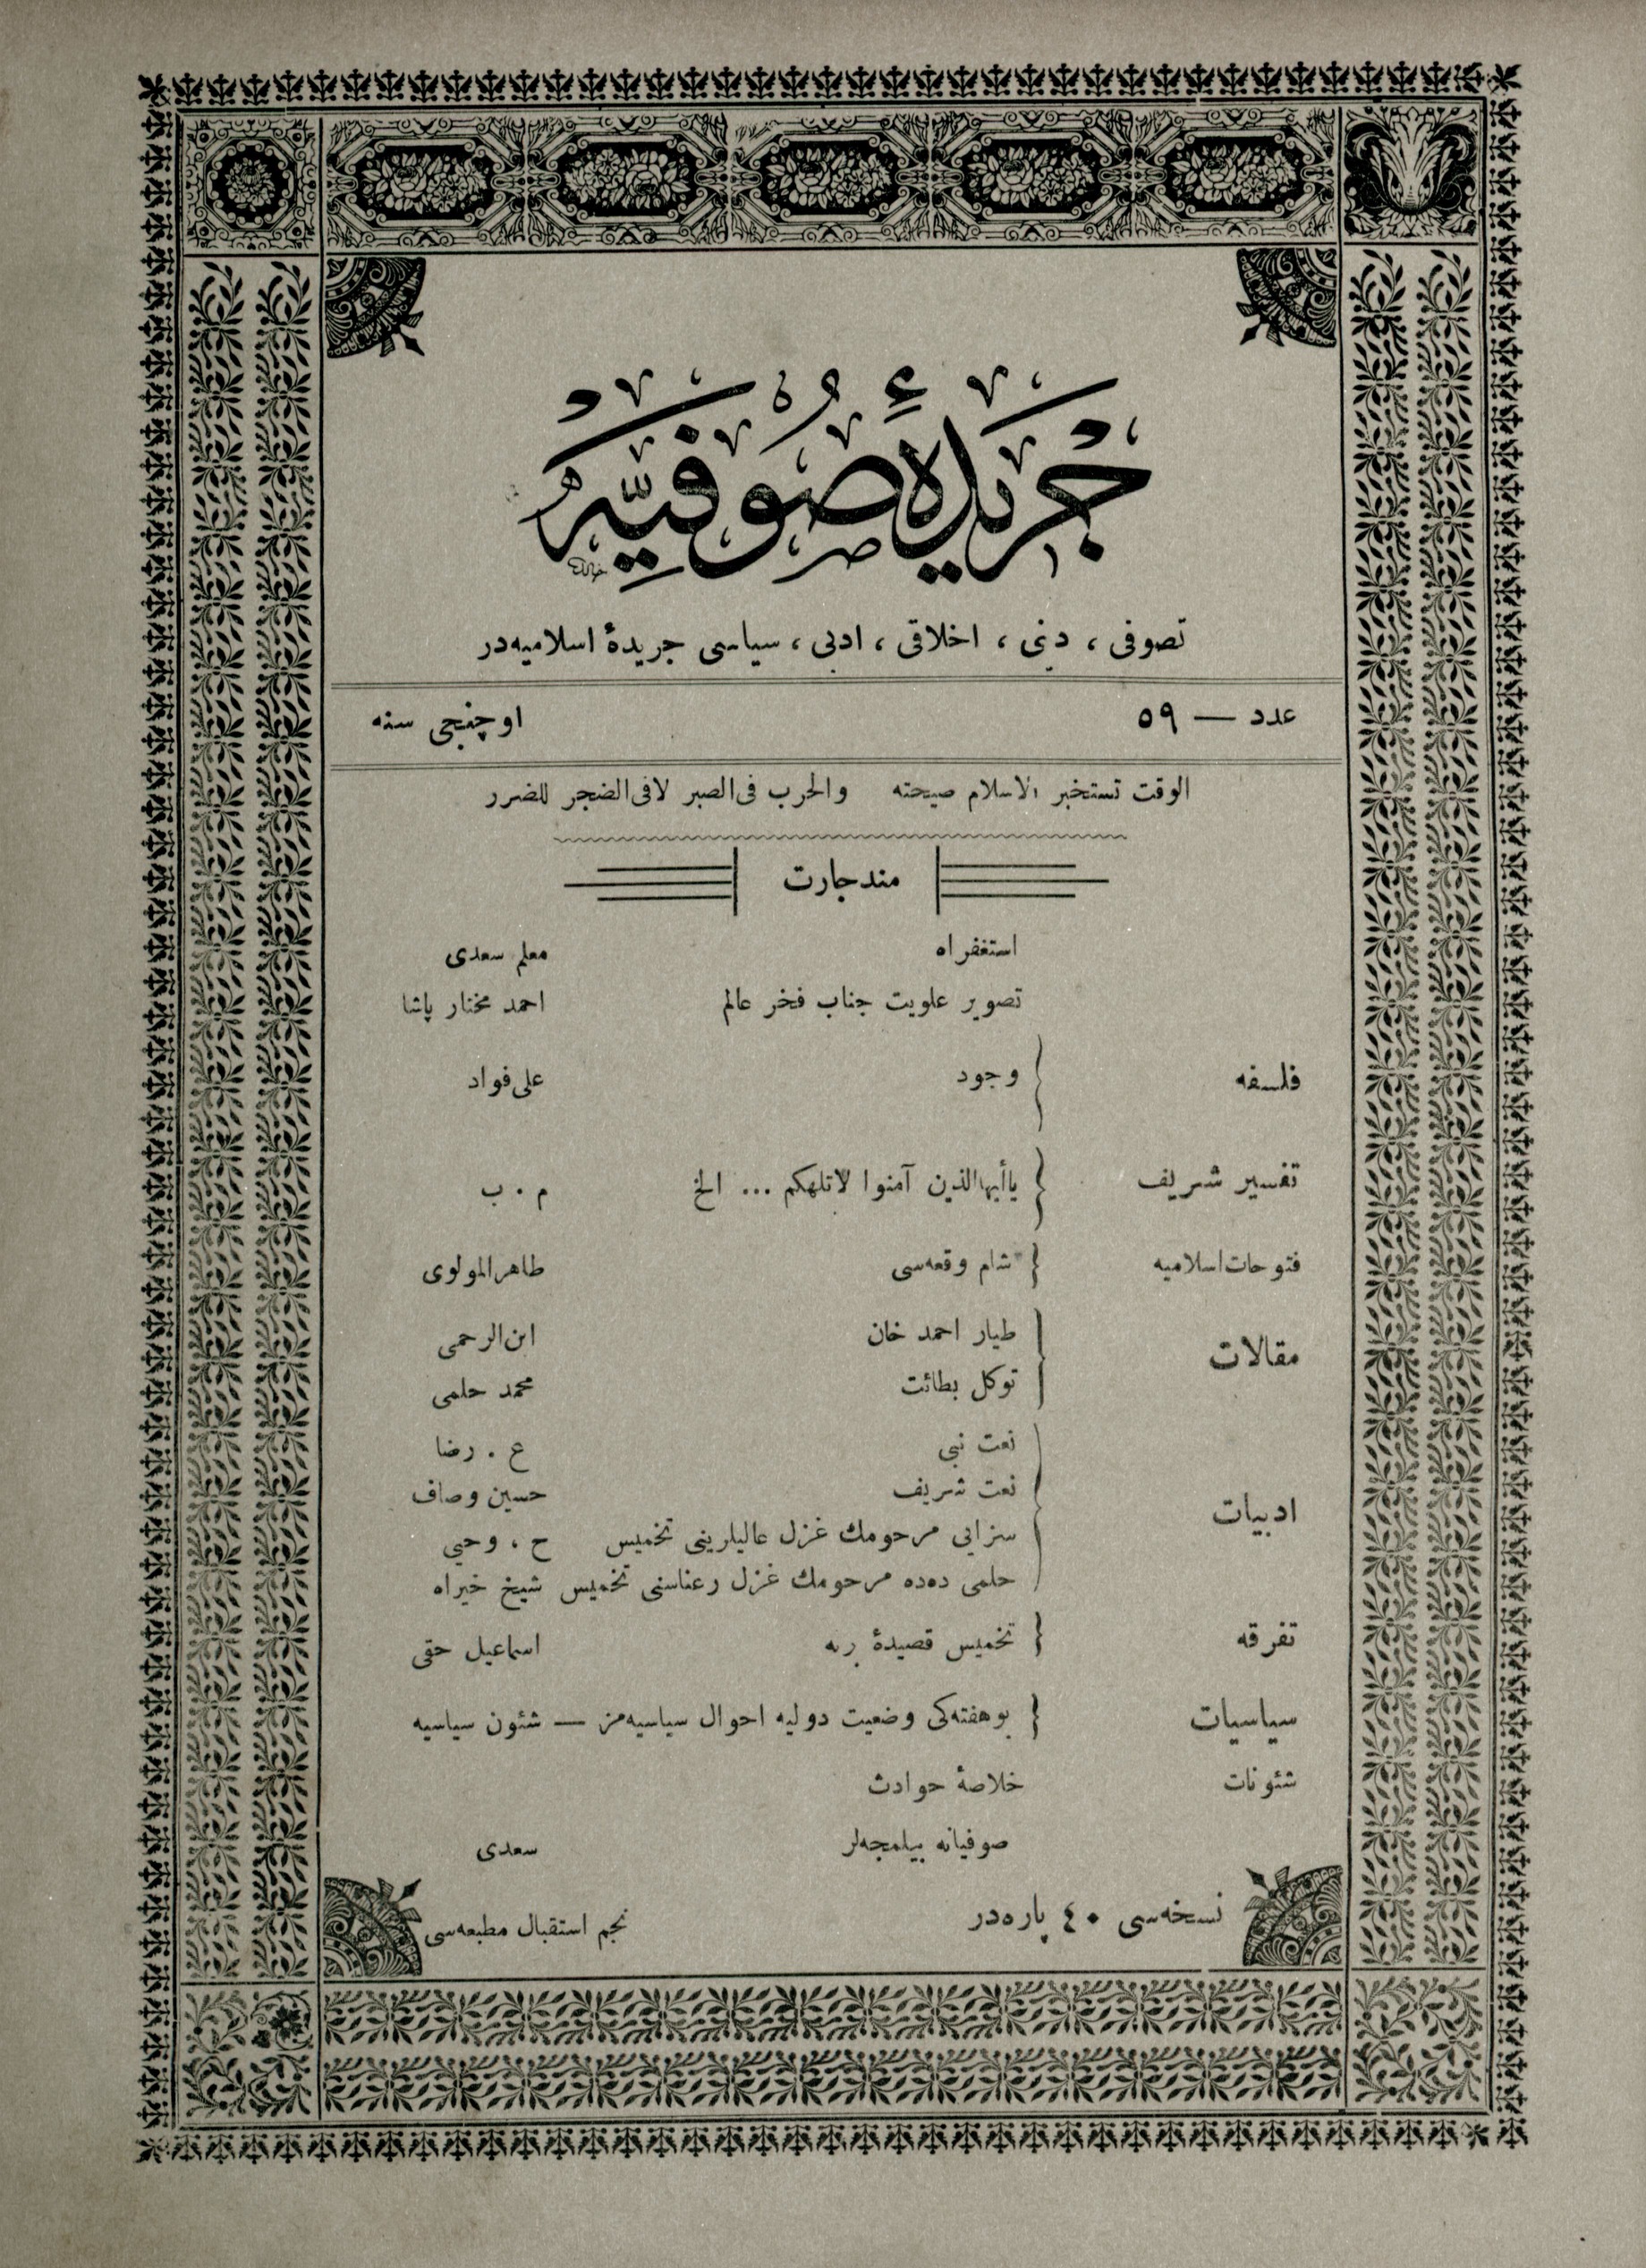 جريدهٔ صوفيه
تصوفى ، دينى ، اخلاقى ، ادبى ، سياسى جريدهٔ اسلاميه‌در
عدد — ٥٩ اوچنجى سنه
الوقت تستخبر الاسلام صيحته والحرب فى‌الصبر لافى‌الضجر للضرر
مندجارت
استغفراه معلم سعدى
تصوير علويت جناب فخر عالم احمد مختار پاشا
فلسفه وجود على‌فواد
تفسير شريف ياأيهاالذين آمنوا لاتلهكم ... الخ م . ب
فتوحات‌اسلاميه شام وقعه‌سى طاهرالمولوى
مقالات
طيار احمد خان ابن‌الرحمى
توكل بطائت محمد حلمى
ادبيات
نعت نبى ع . رضا
نعت شريف حسين وصاف
سزايى مرحومك غزل عاليلرينى تخميس ح . وحيى
حلمى دده مرحومك غزل رعناسنى تخميس شيخ خيراه
تفرقه تخميس قصيدهٔ اسماعيل حقى
سياسيات بوهفته‌كى وضعيت دوليه احوال سياسيه‌مز — شئون سياسيه
شئونات خلاصهٔ حوادث
صوفيانه بيلمجه‌لر سعدى
نسخه‌سى ٤٠ پاره‌در نجم استقبال مطبعه‌سى